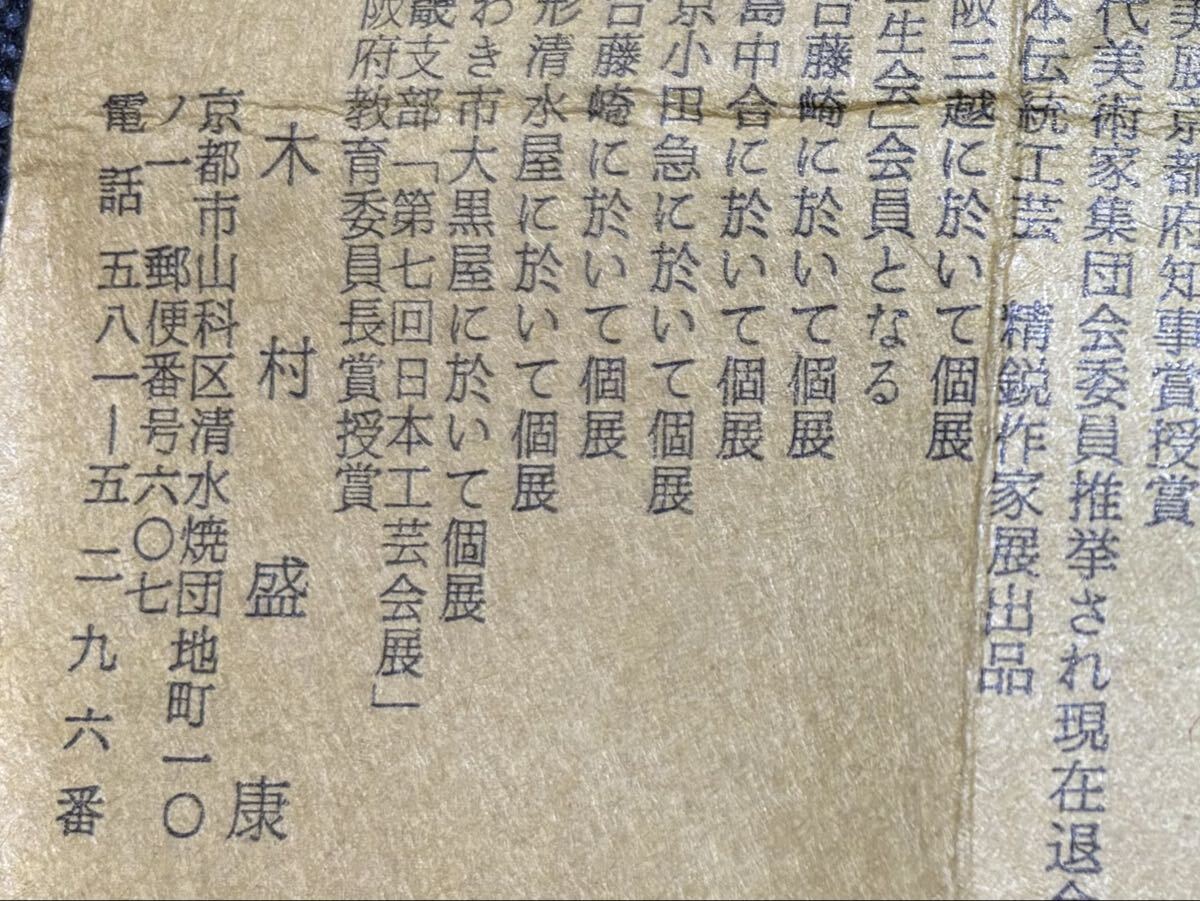 美展京都府知事賞授賞
代美術家集団会委員推挙され現在退会
本伝統工芸 精鋭作家展出品
阪三越に於いて個展
生会」会員となる
台藤崎に於いて個展
島中合に於いて個展
京小田急に於いて個展
台藤崎に於いて個展
形清水屋に於いて個展
わき市大黒屋に於いて個展
畿支部「第七回日本工芸会展」
阪府教育委員長賞授賞
木村盛康
京都市山科区清水焼団地町一〇
ノ一 郵便番号六〇七
電話 五八一―五二九六番